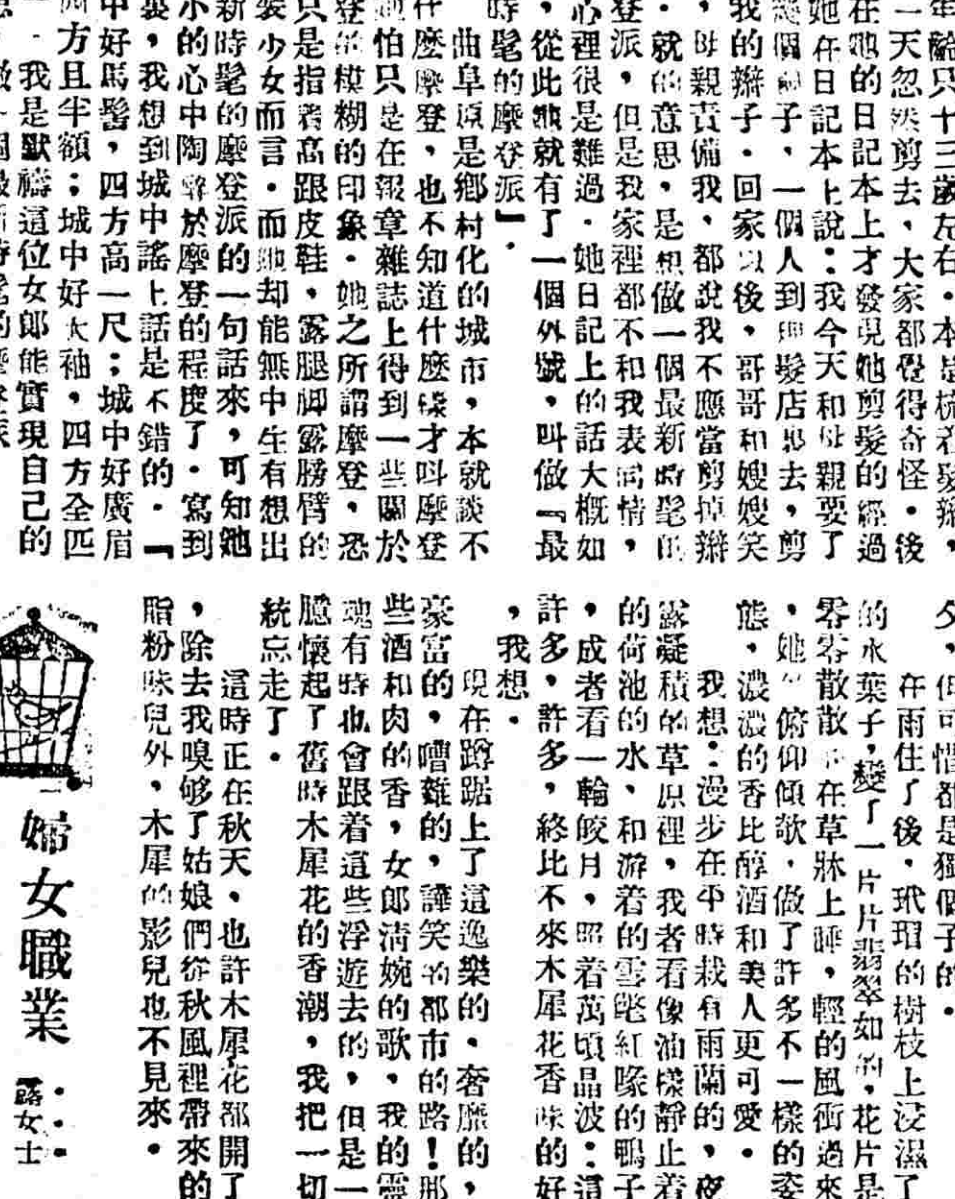 年齡只十三歲左右。本是梳着髮辮，
一天忽然剪去，大家都覺得奇怪。後
在她的日記本上才發現她剪髮的經過
她在日記本上說：我今天和母親要了
幾個 子，一個人到理髮店那去，剪
我的辮子。回家以後，哥哥和嫂嫂笑
，母親責備我，都說我不應當剪掉辮
。就的意思，是想做一個最新時髦的
登派，但是我家裡都不和我表同情，
心裡很是難過。她日記上的話大概如
，從此她就有了一個外號，叫做『最
時髦的摩登派』。
曲阜原是鄉村化的城市，本就談不
什麼摩登，也不知道什麼樣才叫摩登
怕只是在報章雜誌上得到一些關於
登的模糊的印象。她之所謂摩登，恐
只是指着高跟皮鞋，露腿脚露膀臂的
裝少女而言。而她却能無中生有想出
新時髦的摩登派的一句話來，可知她
小的心中陶醉於摩登的程度了。寫到
裏，我想到城中謠上話是不錯的。『
中好馬髻，四方高一尺；城中好廣眉
四方且半額；城中好大袖，四方全匹
。我是默禱這位女郎能實現自己的
做一個最新時髦的摩登派
夕，但可惜都是獨個子的。
在雨住了後，玳瑁的樹枝上浸濕了
的水葉子，變了一片片翡翠如的，花片是
零零散散 在草牀上睡，輕的風衝過來
，她 俯仰傾欹，做了許多不一樣的姿
態，濃濃的香比醇酒和美人更可愛。
我想：漫步在平時栽有雨蘭的，夜
露凝積的草原裡，我者看像油樣靜止着
的荷池的水，和游着的雪氅紅喙的鴨子
，成者看一輪皎月，照着萬頃晶波：這
許多，許多，終比不來木犀花香味的好
，我想。
現在蹲踞上了這逸樂的，奢靡的，
豪富的，嘈雜的，譁笑的都市的路！那
些酒和肉的香，女郎淸婉的歌，我的靈
魂有時也會跟着這些浮遊去的，但是一
臆懷起了舊時木犀花的香潮，我把一切
統忘走了。
這時正在秋天，也許木犀花都開了
，除去我嗅够了姑娘們從秋風裡帶來的
脂粉味兒外，木犀的影兒也不見來。
婦女職業
露女士